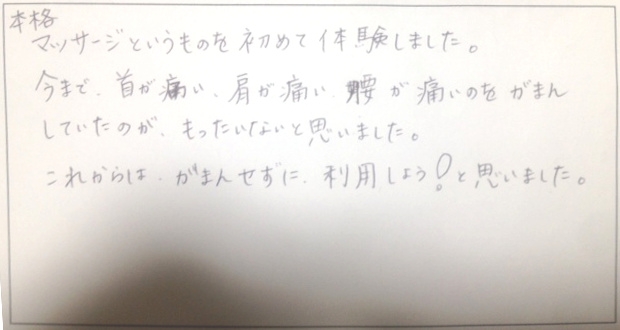 本格
マッサージというものを初めて体験しました。
今まで、首が痛い、肩が痛い、腰が痛いのをがまん
していたのが、もったいないと思いました。
これからは、がまんせずに、利用しよう!と思いました。